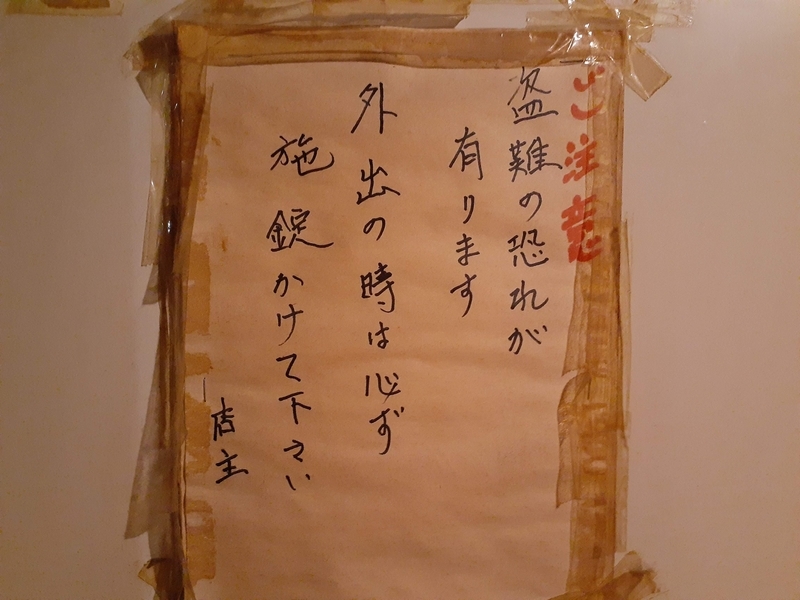 ご注意
盗難の恐れが
有ります
外出の時は必ず
施錠かけて下さい
店主